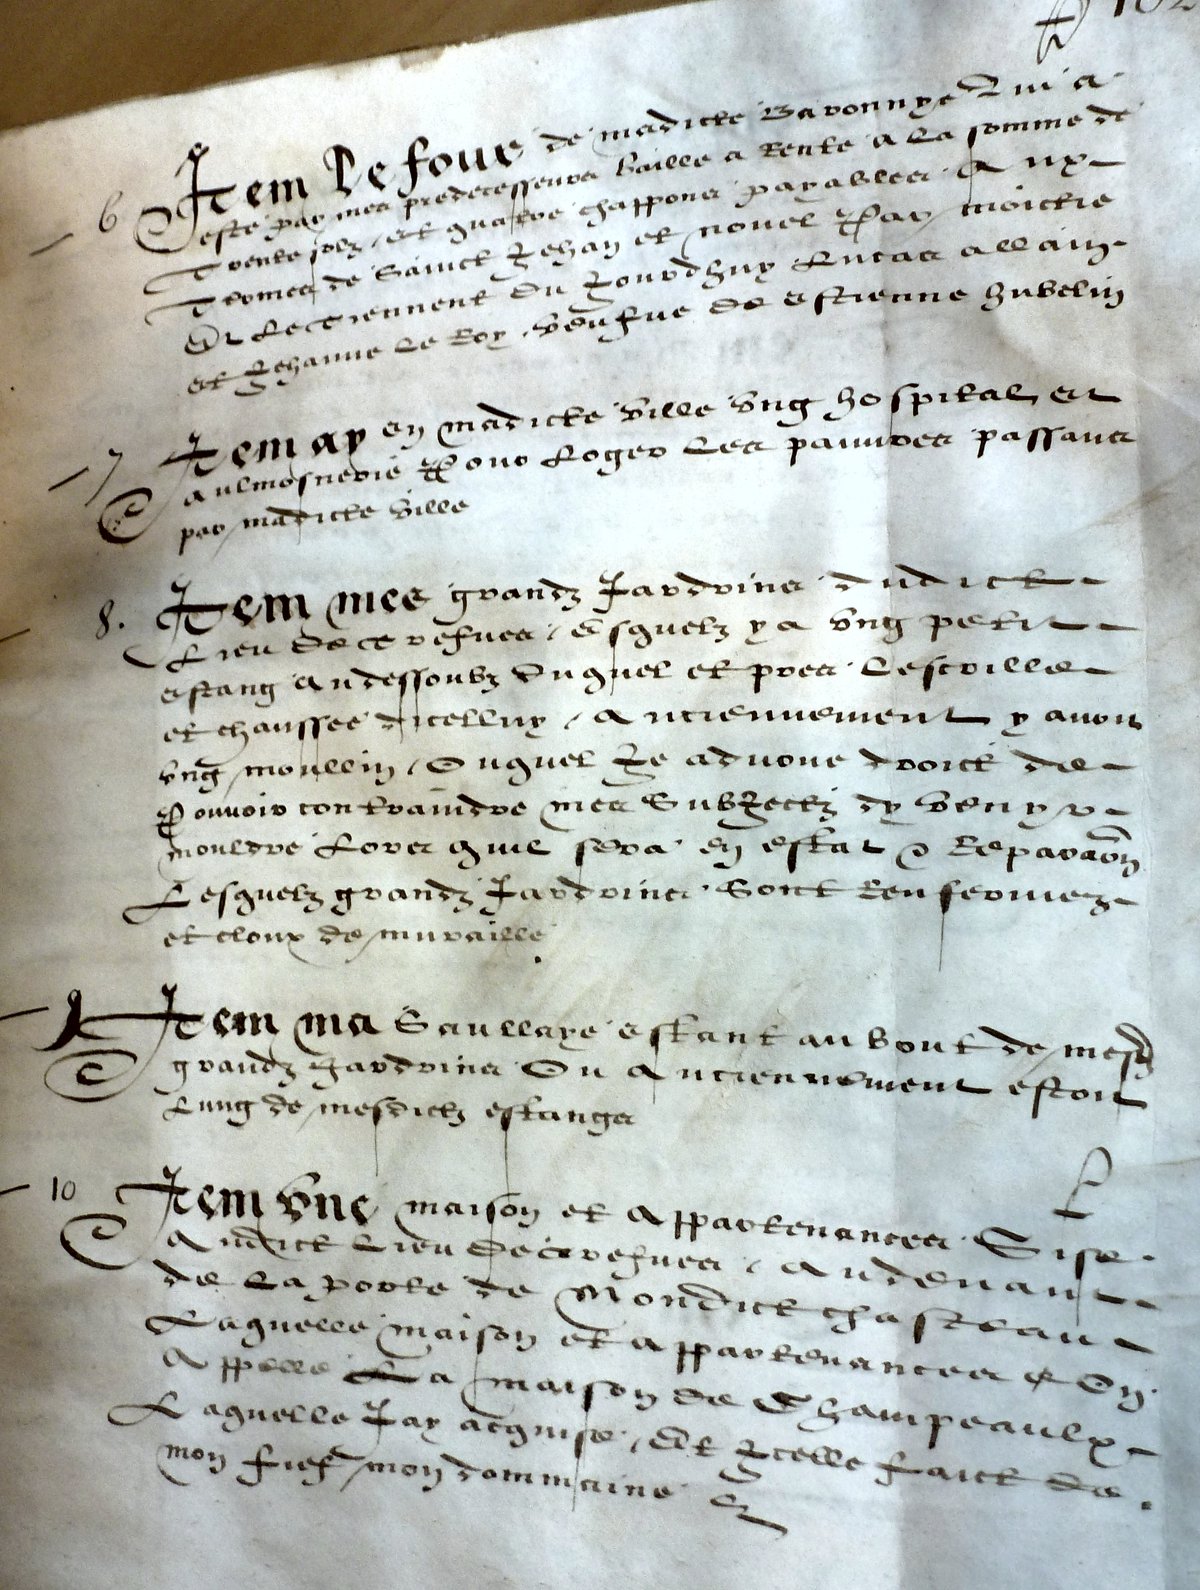 102
6 Item Le four de madicte Baronnye Qui a
este par mes predecesseurs baille a Rente a La somme de
trente solz, et quatre chappons payables Aux
termes de Sainct Jehan et nouel Par moictie
Et Le tiennent du Jourdhuy Lucas allain
et Jehanne Le Roy, veufue de estienne hubelin
7 Item ay en madicte ville vng hospital et
aulmosnerie Pour Loger Les pauures passans
par madicte ville
8. Item mes grandz Jardrins dudict
Lieu De trefues, Esquelz y a vng petit
estang Au dessoubz duquel et pres Lescville
et chaussee dicelluy, Antiennement y auoit
vng moullin, Duquel Je aduoue droict de
Pouuoir contraindre mes Subjectz dy venyr
mouldre Lors quil sera en estat & Reparaon
Lesquelz grandz Jardrins Sont Renfermez
et cloux de muraille
9 Item ma Saullaye estant au bout de mesd
grandz Jardrins Ou Antiennement estoit
Lung de mesdictz estangs
10 Item vne maison et Appartenances Sise
Audict Lieu De trefues, Au deuant
de La porte de Mondict chasteau
Laquelle maison et appartenances On
Appelle La maison de Champeaulx
Laquelle Jay acquise, Et Icelle faict de
mon fief mon dommaine